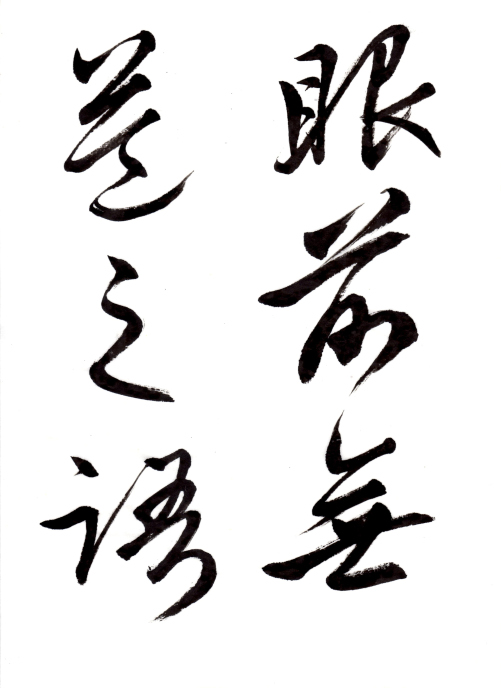 眼前無
益之語